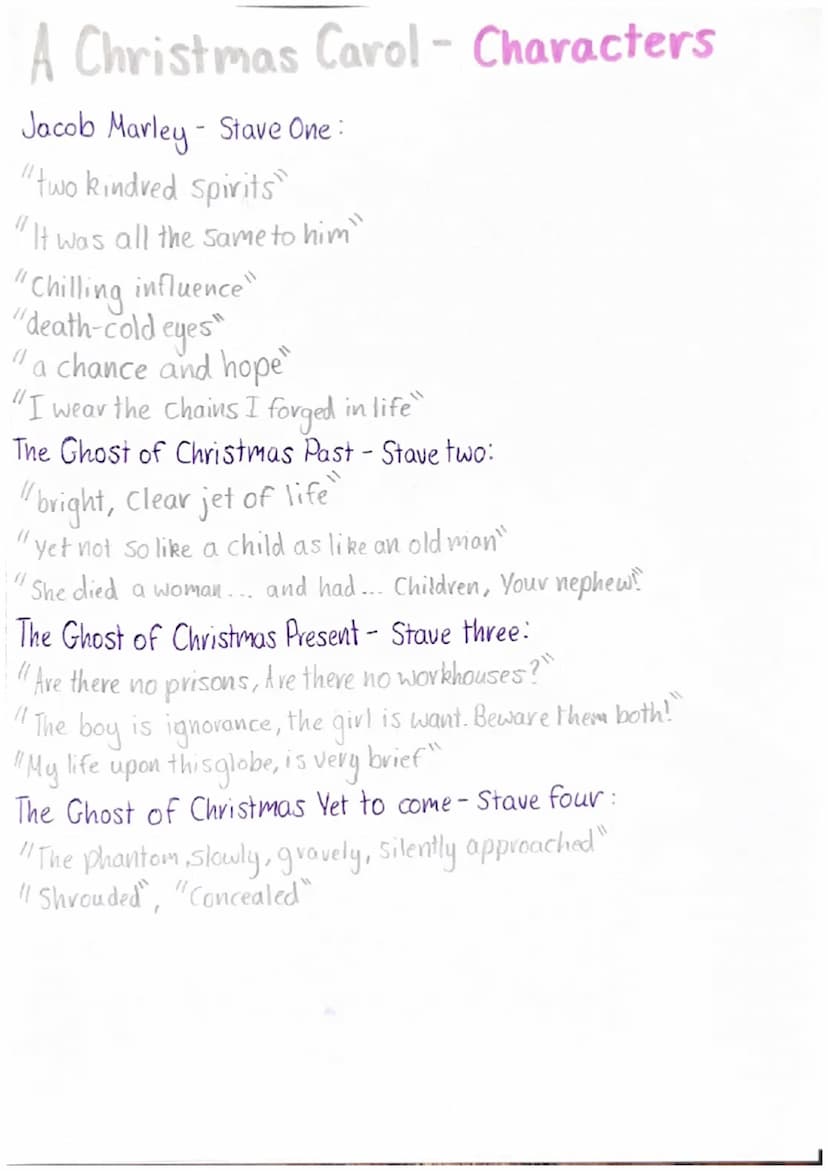 A Christmas Carol - Characters
Jacob Marley - Stave One:
"two kindred spirits"
"It was all the same to him"
"Chilling influence"
"death-cold eyes"
"a chance and hope"
"I wear the chains I forged in life"
The Ghost of Christmas Past - Stave two:
"bright, clear jet of life"
"yet not so like a child as like an old man"
"She died a woman... and had... Children, Your nephew!"
The Ghost of Christmas Present - Stave three:
"Are there no prisons, Are there no workhouses?"
"The boy is ignorance, the girl is want. Beware them both!"
"My life upon this globe, is very brief"
The Ghost of Christmas Yet to come - Stave four:
"The phantom, slowly, gravely, silently approached"
"Shrouded", "Concealed"